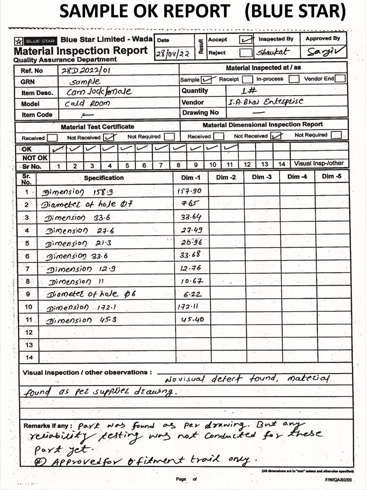 SAMPLE OK REPORT (BLUE STAR)
BLUE STAR Blue Star Limited - Wada
Material Inspection Report
Quality Assurance Department
Date 28/04/22
Result Accept ✓ Reject
Inspected By Shaukat
Approved By
Ref. No 28D2022/01
Material Inspected at / as
GRN Sample
Sample ✓ Receipt In-process Vendor End
Item Desc. Cam lock female
Quantity 1#
Model Cold Room
Vendor Enterprise
Item Code —
Drawing No —
Material Test Certificate
Material Dimensional Inspection Report
Received Not Received ✓ Not Required
Received Not Received ✓ Not Required
OK ✓ ✓ ✓ ✓ ✓ ✓ ✓ ✓ ✓ ✓ ✓
NOT OK
Sr No. 1 2 3 4 5 6 7 8 9 10 11 12 13 14 Visual Insp./other
Sr. No. Specification Dim -1 Dim -2 Dim -3 Dim -4 Dim -5
1 Dimension 158.9 157.90
2 Diameter of hole Ø7 7.65
3 Dimension 33.6 33.64
4 Dimension 27.6 27.49
5 Dimension 21.3 20.96
6 Dimension 33.6 33.68
7 Dimension 12.9 12.76
8 Dimension 11 10.67
9 Diameter of hole Ø6 6.22
10 Dimension 172.1 172.11
11 Dimension 45.3 45.40
12
13
14
Visual Inspection / other observations :
No visual defect found, material
found as per supplier drawing.
Remarks if any : Part was found as per drawing. But any
reliability testing was not conducted for these
part yet.
Approved for fitment trail only.
(All dimensions are in "mm" unless and otherwise specified)
Page of